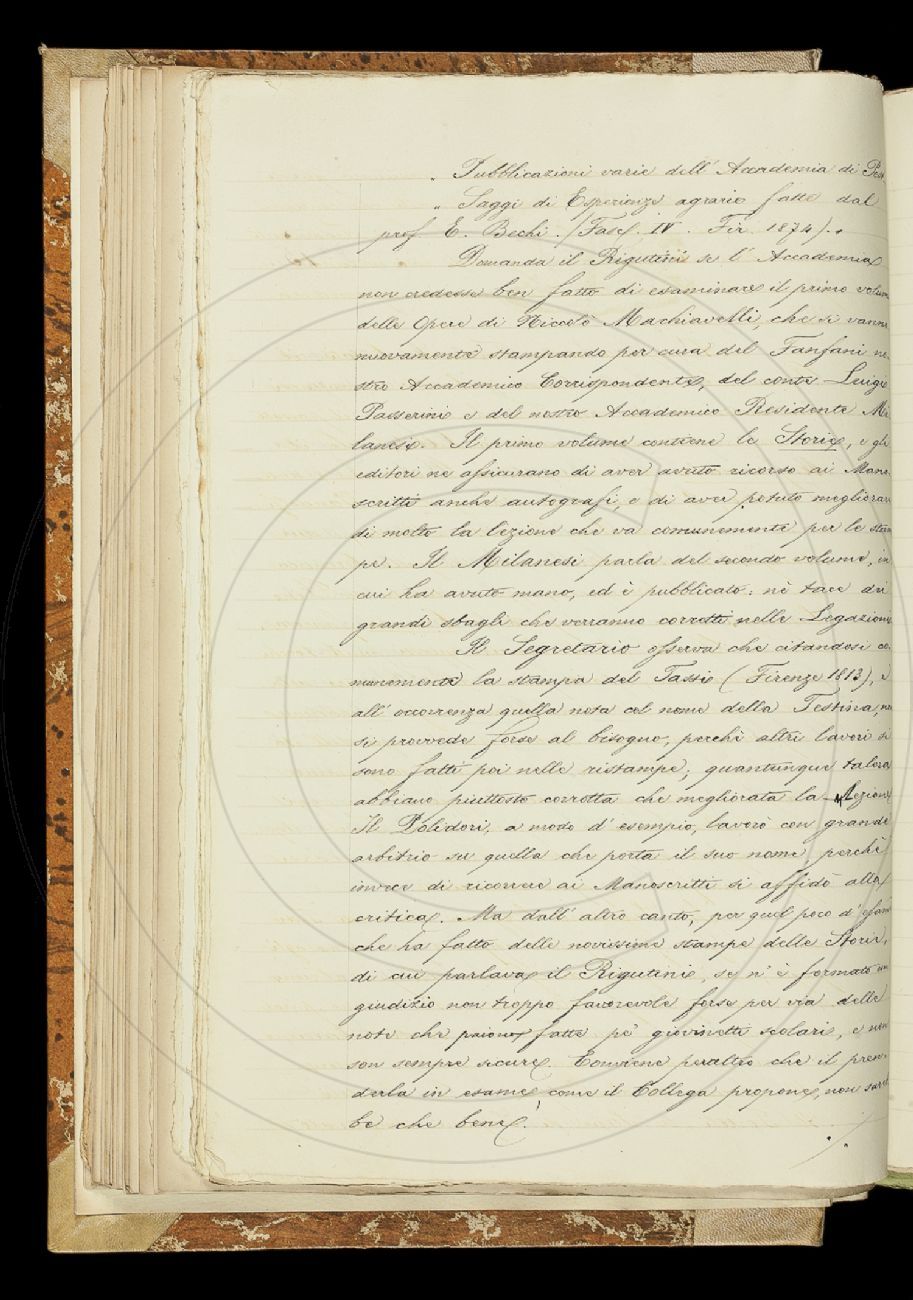 „ Pubblicazioni varie dell' Accademia di
„ Saggi di Esperienze agrarie fatte dal
prof E. Bechi. (Fasc. IV. Fir. 1874). „
Domanda il Rigutini se l' Accademia
non credesse ben fatto di esaminare il primo volume
delle Opere di Niccolò Machiavelli, che si vanno
nuovamente stampando per cura del Fanfani no
stro Accademico Corrispondente, del conte Luigi
Passerini e del nostro Accademico Residente Mi
lanesi. Il primo volume contiene le Storie, e gli
editori ne assicurano di aver avuto ricorso ai Mano
scritti anche autografi, e di aver potuto migliorar
di molto la lezione che va comunemente per le stam
pe. Il Milanesi parla del secondo volume, in
cui ha avuto mano, ed è pubblicato: nè tace dei
grandi sbagli che verranno corretti nelle Legazioni
Il Segretario osserva che citandosi co
munemente la stampa del Tassi (Firenze 1813), e
all' occorrenza quella nota col nome della Testina, non
si provvede forse al bisogno, perchè altri lavori si
sono fatti poi nelle ristampe; quantunque talora
abbiano piuttosto corrotta che megliorata la lezione
Il Polidori, a modo d' esempio, lavorò con grande
arbitrio su quella che porta il suo nome, perchè
invece di ricorrere ai Manoscritti si affidò alla
critica. Ma dall' altro canto, per quel poco d' esame
che ha fatto delle novissime stampe delle Storie,
di cui parlava il Rigutini, se n' è formato un
giudizio non troppo favorevole forse per via delle
note che paiono fatte pe' giovinetti scolari, e non
son sempre sicure. Conviene peraltro che il pren-
derla in esame, come il Collega propone, non sareb
be che bene.